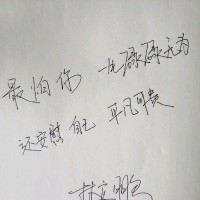 最怕你 一生碌碌无为
还安慰自己 平凡可贵